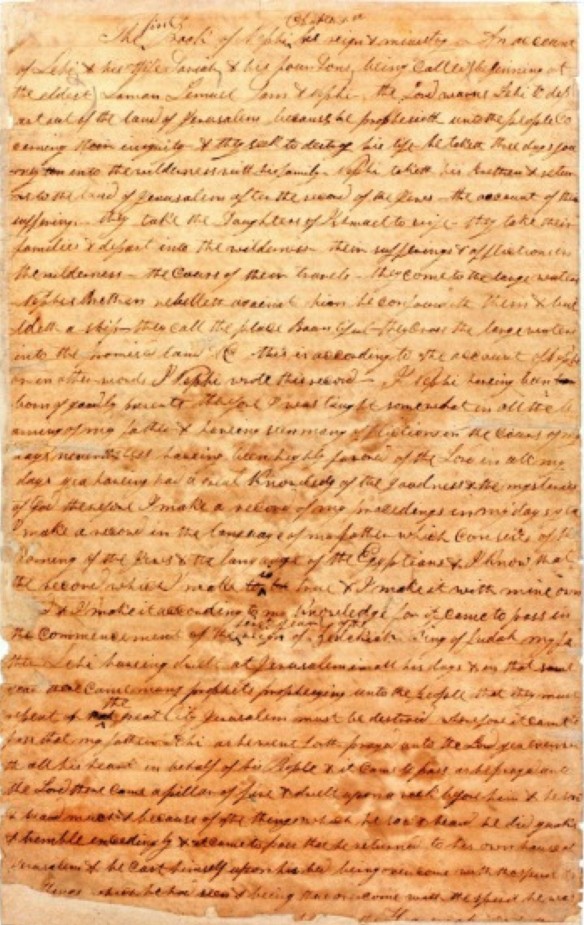 Chapter 1st
The first Book of Nephi his reign & ministry An account
of Lehi & his Wife Sariah & his four Sons being call'd beginning at
the eldest Laman Lemuel Sam & Nephi the Lord warns Lehi to dep
art out of the land of Jerusalem because he prophesieth unto the people co
ncerning their iniquity & they seek to destroy his life he taketh three days jou
rney into the wilderness with his family Nephi taketh his Brethren & return
to the land of Jerusalem after the record of the Jews the account of their
sufferings they take the Daughters of Ishmael to wife they take their
families & depart into the wilderness their sufferings & afflictions in
the wilderness the Cours of their travels they come to the large waters
Nephis Brethren rebelleth against him he confoundeth them & bui
ldeth a ship they call the place Bountiful they cross the large waters
into the promised land &C this is according to the account of Nephi
or in other words I Nephi wrote this record I Nephi having been
born of goodly parents therefore I was taught somewhat in all the le
arning of my father & having seen many afflictions in the Cours of my
days nevertheless having been highly favored of the Lord in all my
days yea having had a great Knowledg of the goodness & the mysteries
of God therefore I make a record of my proceedings in my days yea
I make a record in the language of my father which consists of the
learning of the Jews & the language of the Egyptians & I know that
the record which I make to be true & I make it with mine own
& I make it according to my knowledge for it came to pass in
the Commencement of the first year of the reign of Zedekiah King of Judah my fa
ther Lehi having dwelt at Jerusalem in all his days & in that same
year there came many prophets prophesying unto the People that they must
repent or the great City Jerusalem must be destroyed wherefore it came to
pass that my father Lehi as he went forth prayed unto the Lord yea even wi
th all his heart in behalf of his People & it came to pass as he prayed unto
the Lord there came a pillar of fire & dwelt upon a rock before him & he saw
& heard much & because of the things which he saw & heard he did quake
& tremble exceedingly & it came to pass that he returned to his own house at
Jerusalem & he cast himself upon his bed being overcome with the spirit &
things which he had seen & being thus overcome with the spirit he was